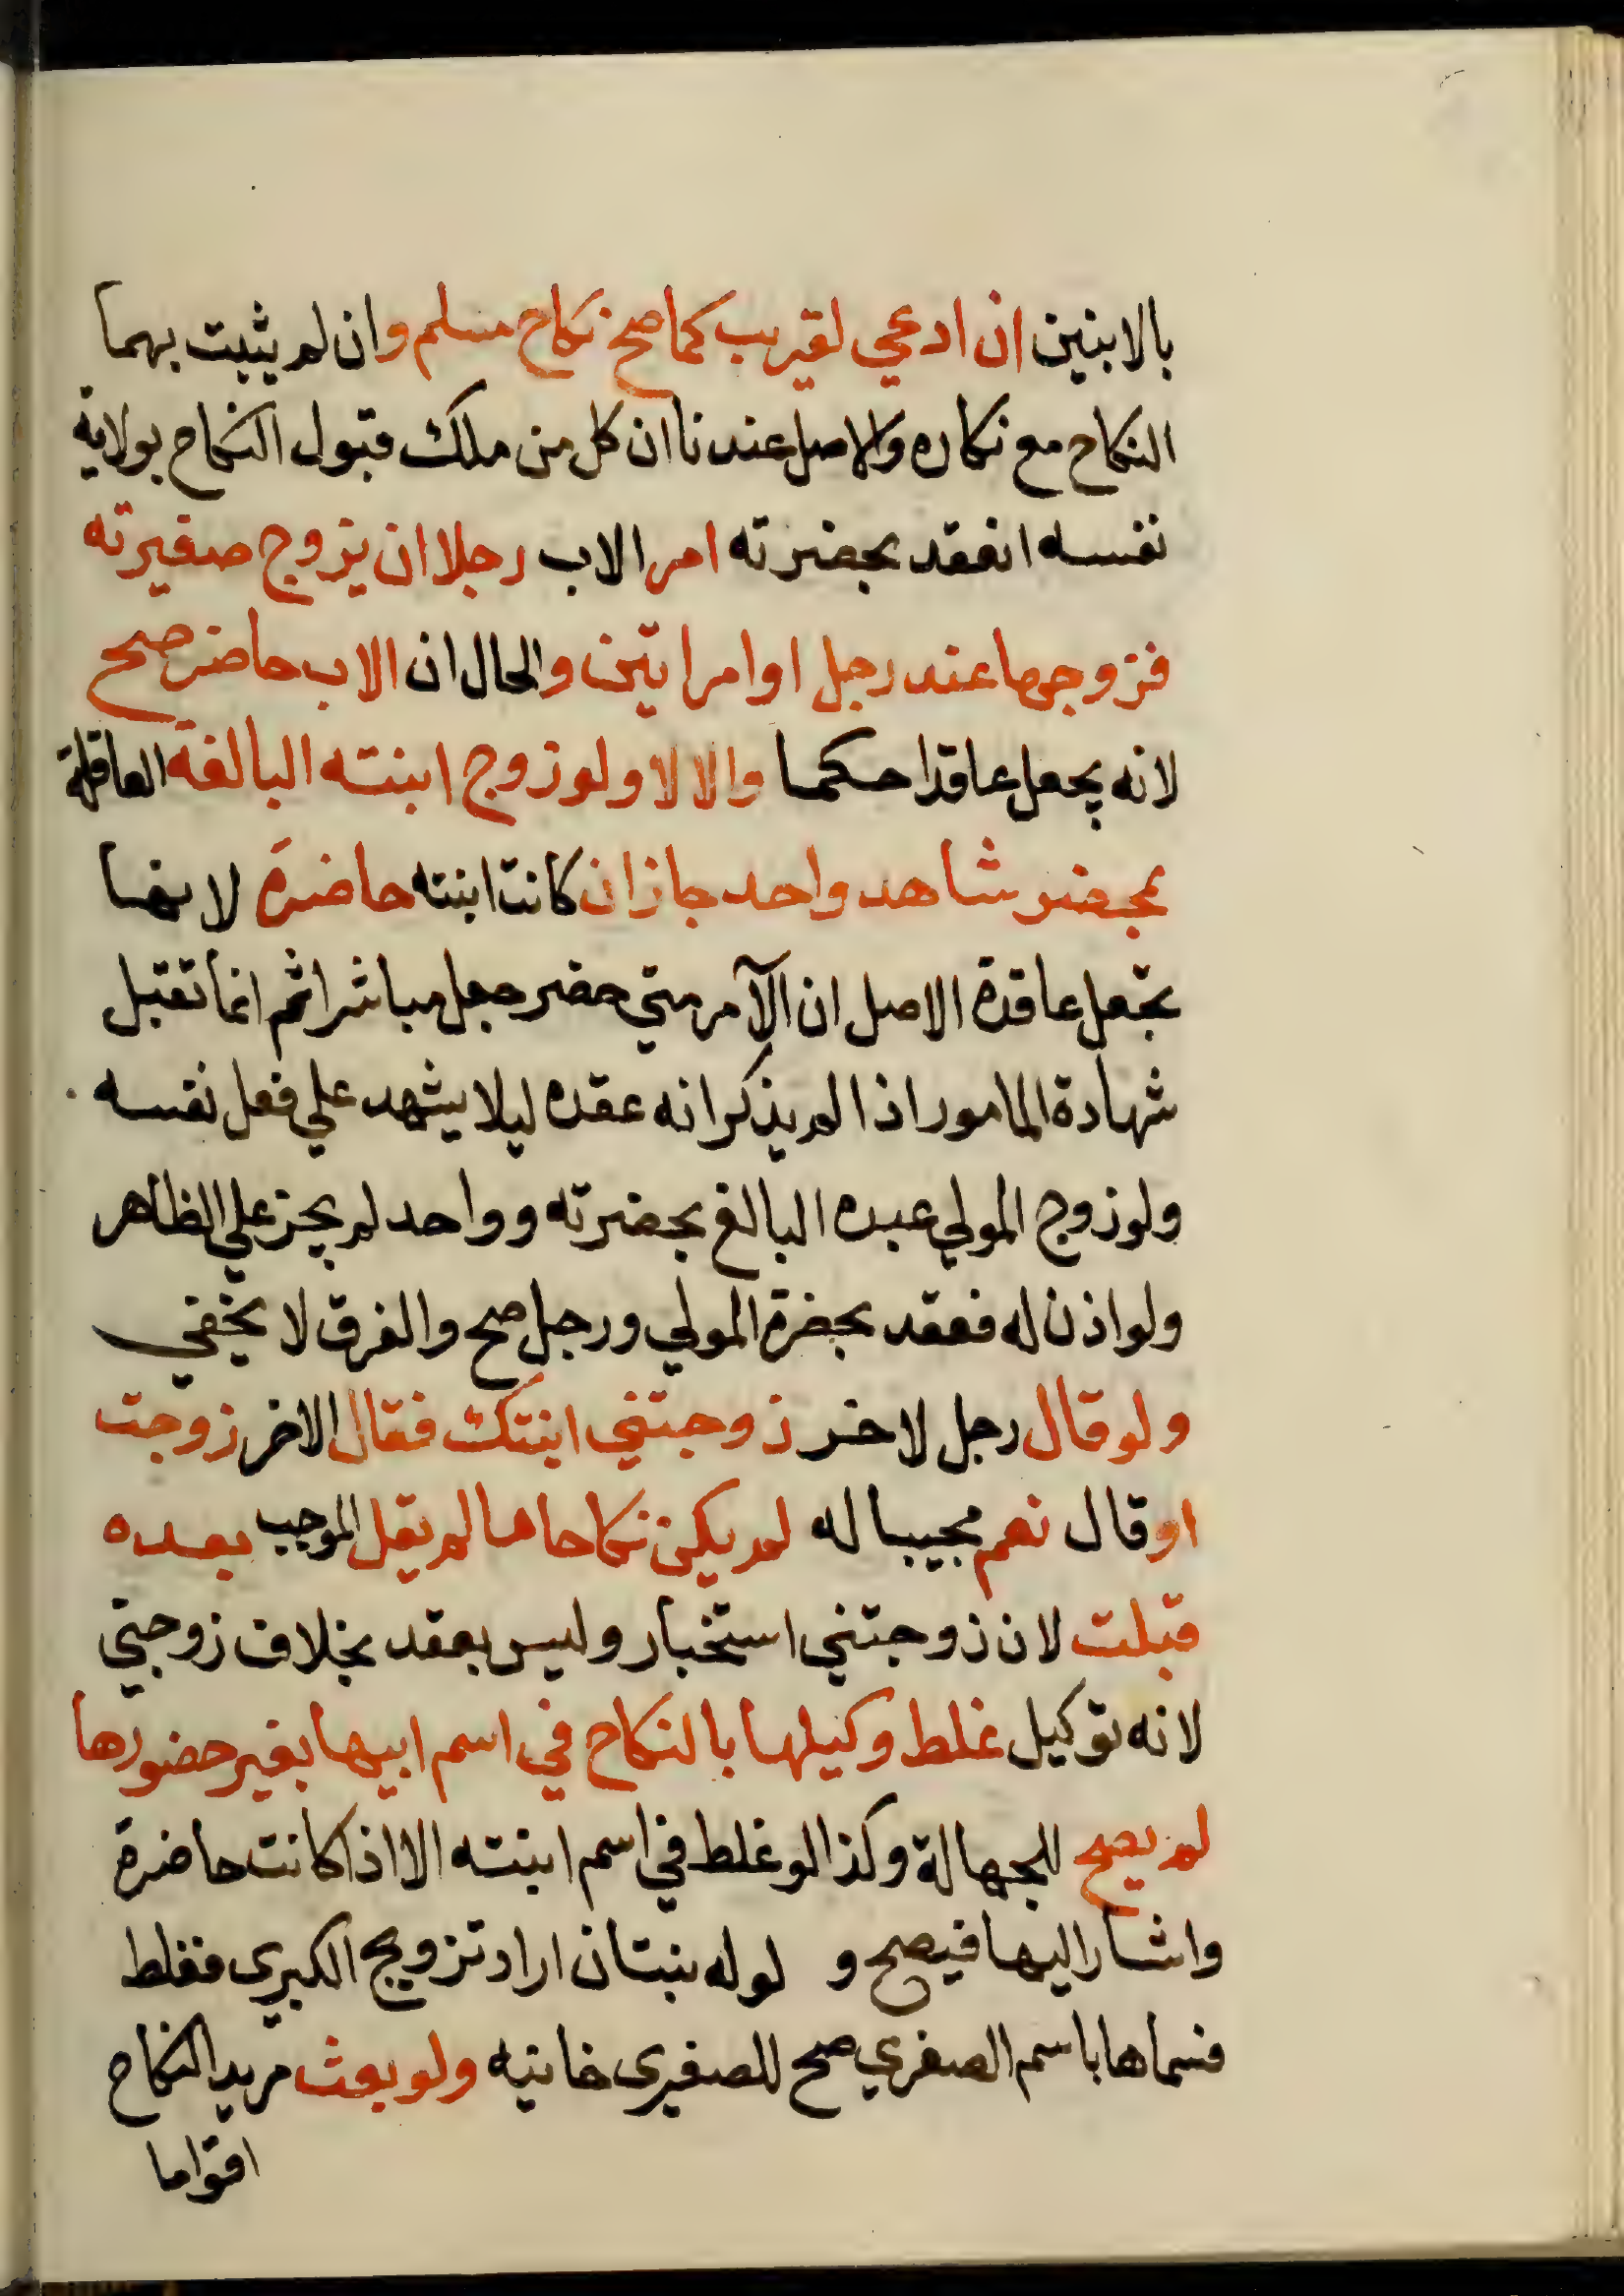 بالابنين ان ادعي لقريب كما صح نكاح مسلم وان لم يثبت بهما
النكاح مع نكاره والاصل عندنا ان كل من ملك قبول النكاح بولاية
نفسه انعقد بحضرته امر الاب رجلا ان يزوج صغيرته
فزوجها عند رجل او امراتين والحال ان الاب حاضر صح
لانه يجعل عاقدا حكما والا لا ولو زوج ابنته البالغة العاقلة
بحضر شاهد واحد جاز ان كانت ابنته حاضرة لانها
تجعل عاقدة الاصل ان الآمر متي حضر جعل مباشرا ثم انما تقبل
شهادة المامور اذا لم يذكر انه عقده ليلا يشهد علي فعل نفسه
ولو زوج المولي عبده البالغ بحضرته وواحد لم يجز علي الظاهر
ولو اذن له فعقد بحضرة المولي ورجل صح والفرق لا يخفي
ولو قال رجل لاخر زوجتني ابنتك فقال الاخر زوجت
او قال نعم مجيبا له لم يكن نكاحا ما لم يقل الموجب بعده
قبلت لان زوجتني استخبار وليس بعقد بخلاف زوجني
لانه توكيل غلط وكيلها بالنكاح في اسم ابيها بغير حضورها
لم يصح للجهالة وكذا لو غلط في اسم ابنته الا اذا كانت حاضرة
واشار اليها فيصح و لو له بنتان اراد تزويج الكبرى فغلط
فسماها باسم الصغري صح للصغيرى خانيه ولو بعث مريد النكاح
اقواما